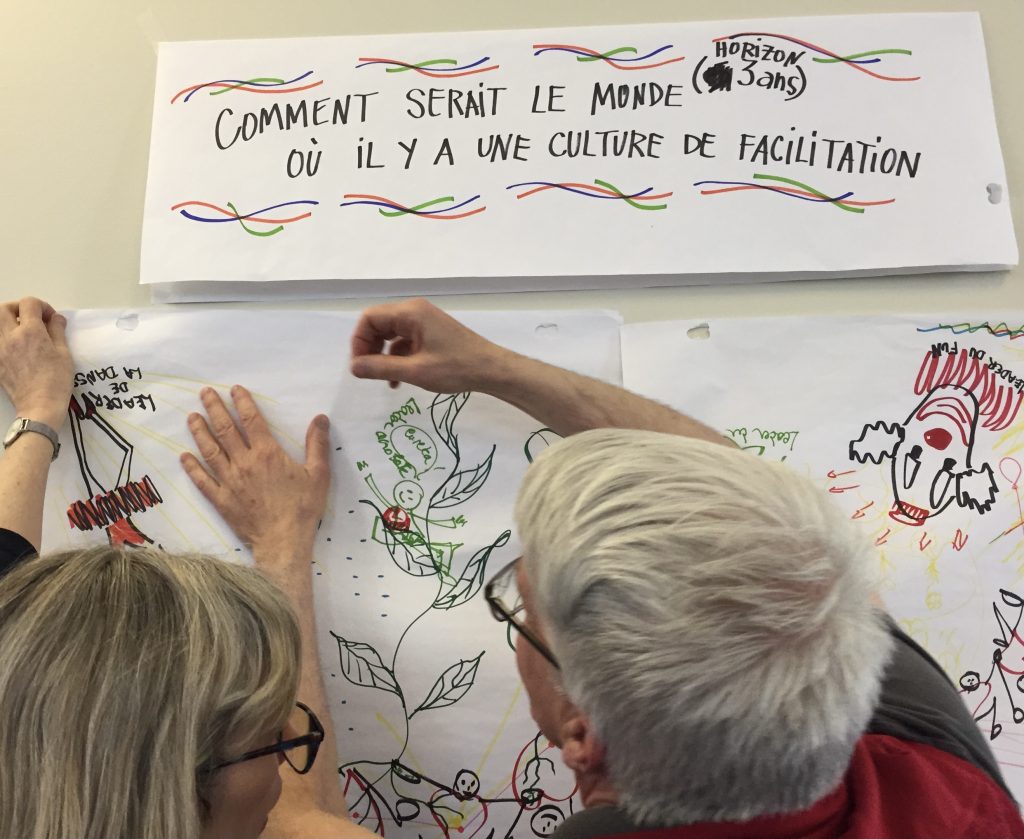 HORIZON
COMMENT SERAIT LE MONDE (3 ans)
OÙ IL Y A UNE CULTURE DE FACILITATION
LEADER
DE
LA DANSE
Leader
LEADER DU FUN
Leader du